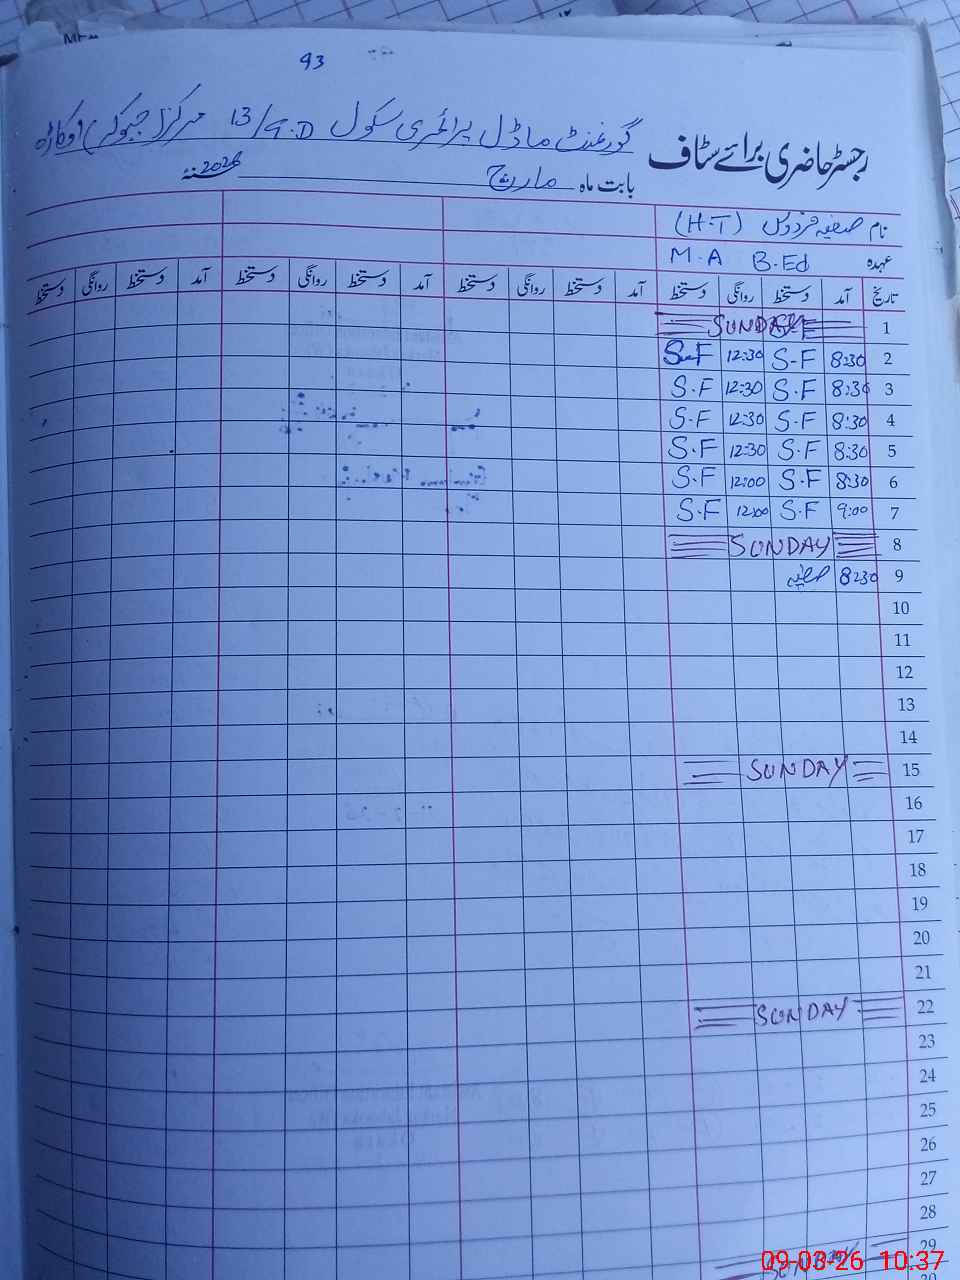 93
رجسٹر حاضری برائے سٹاف گورنمنٹ ماڈل پرائمری سکول 13/G.D مرکز (جبوکہ) اوکاڑہ
بابت ماہ مارچ 2026ء
نام صفیہ فردوس (H.T)
عہدہ M.A B.Ed
تاریخ آمد دستخط روانگی دستخط آمد دستخط روانگی دستخط آمد دستخط روانگی دستخط آمد دستخط روانگی دستخط
1 SUNDAY
2 8:30 S-F 12:30 S-F
3 8:30 S.F 12:30 S.F
4 8:30 S.F 12:30 S.F
5 8:30 S.F 12:30 S.F
6 8:30 S.F 12:00 S.F
7 9:00 S.F 12:00 S.F
8 SUNDAY
9 8:30 صفیہ
10
11
12
13
14
15 SUNDAY
16
17
18
19
20
21
22 SUNDAY
23
24
25
26
27
28
29 SUNDAY
09-03-26 10:37